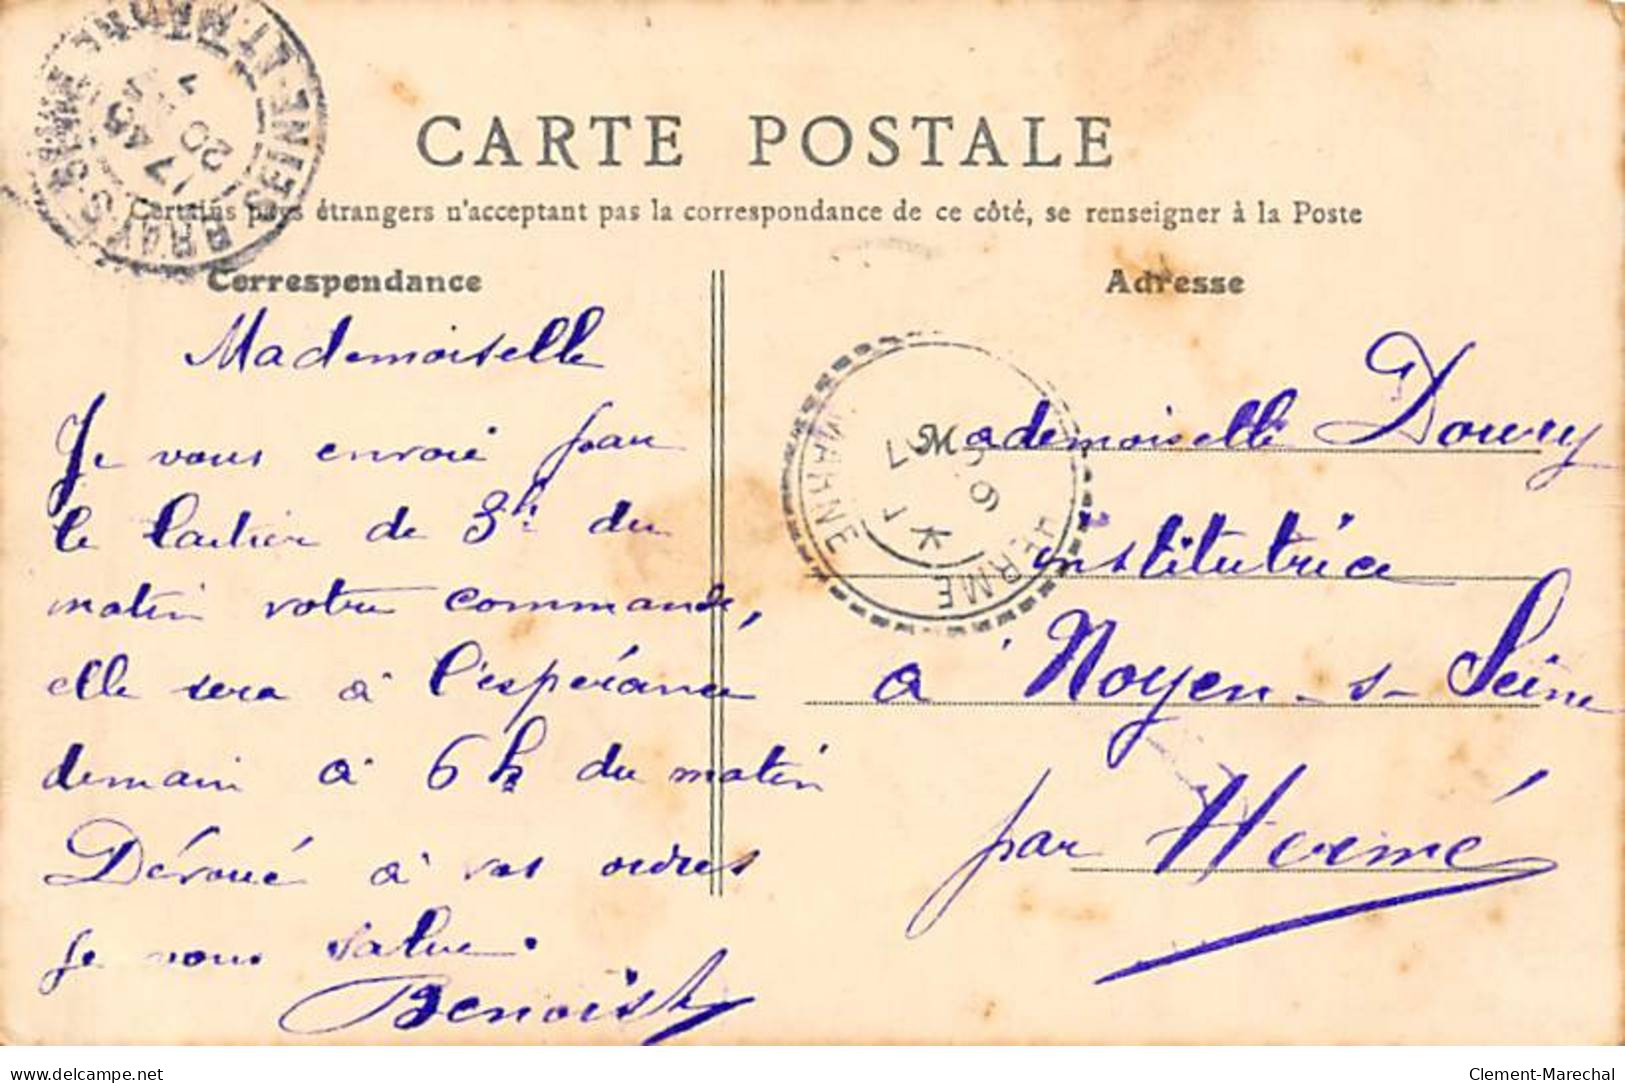 CARTE POSTALE
Certains pays étrangers n'acceptant pas la correspondance de ce côté, se renseigner à la Poste
Correspondance
Mademoiselle
Je vous envoie par
le laitier de 3h du
matin votre commande,
elle sera à l'espérance
demain à 6h du matin
Dévoué à vos ordres
je vous salue.
Benoist
Adresse
Mademoiselle Doury
institutrice
à Noyen-s-Seine
par Hermé
BRAY-S-SEINE
SEINE ET MARNE
17 45
20
HERMÉ
MARNE
delcampe.net
Clement-Marechal